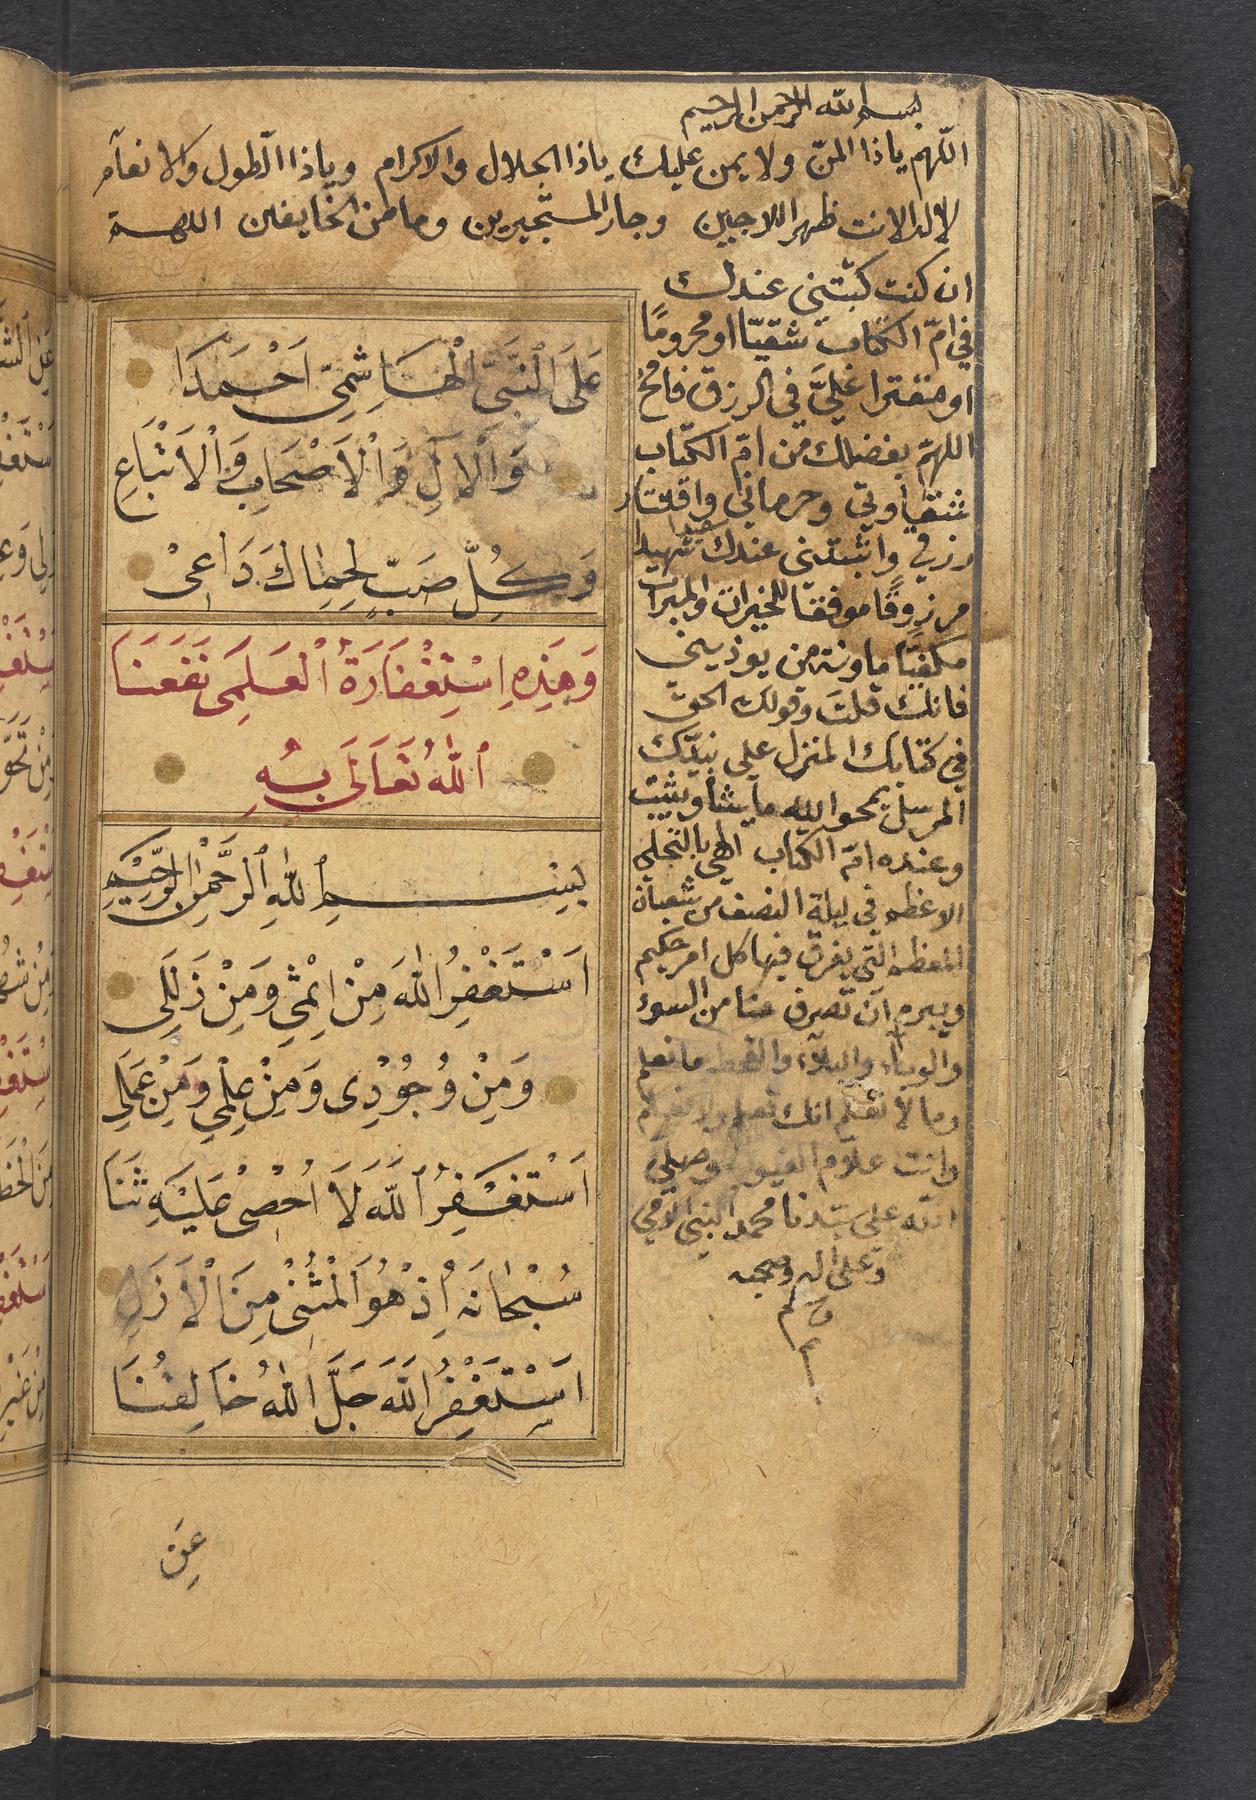 بسم الله الرحمن الرحيم
اللهم ياذا المنّ ولا يمن عليك ياذا الجلال والاكرام وياذا الطول والانعام
لا اله الا انت ظهر اللاجين وجار المستجيرين ومامن الخايفين اللهم
ان كنت كتبتني عندك
في امّ الكتاب شقيّا او محروما
او مقترا عليّ في الرزق فامحُ
اللهم بفضلك من امّ الكتاب
شقاوتي وحرماني واقتار
رزقي واثبتني عندك سعيدا
مرزوقًا موفقا للخيرات والمبرات
مكفيّا من يوذيني
فانك قلت وقولك الحق
في كتابك المنزل على نبيّك
المرسل يمحوا الله ما يشا ويثبت
وعنده امّ الكتاب الهي بالتجلي
الاعظم في ليلة النصف من شعبان
المعظم التي يفرق فيها كل امر حكيم
ويبرم ان تصرف عنا من السوء
والوباء والبلاء والقحط ما نعلم
وما لا نعلم انك تعلم ولا نعلم
وانت علام الغيوب وصلى
الله على سيدنا محمد النبي الامي
وعلى اله وصحبه
عَلَى ٱلنَّبِيِّ الْهَاشِمِيّ اَحْمَدَا
وَالْاٰلِ وَالْاَصْحَابِ وَالْاَتْبَاعِ
وَكُلِّ صَبٍّ لِحِمَاكَ دَاعِىْ
وَهَذِهِ اِسْتِغْفَارَةُ الْعَلَمِى نَفَعَنَا
ٱللّٰهُ تَعَالَى بِهِ
بِسْمِ ٱللّٰهِ ٱلرَّحْمٰنِ الرَّحِيْمِ
اَسْتَغْفِرُ اللّٰهَ مِنْ اِثْمِي وَمِنْ زَلَلِى
وَمِنْ وُجُوْدِى وَمِنْ عِلْمِي وَمِنْ عَمَلِى
اَسْتَغْفِرُ ٱللّٰهَ لَا اُحْصِى عَلَيْهِ ثَنَا
سُبْحَانَهُ اِذْ هُوَ الْمُثْنٰى مِنَ الْاَزَلِ
اَسْتَغْفِرُ اللّٰهَ جَلَّ اللّٰهُ خَالِقُنَا
عَنْ